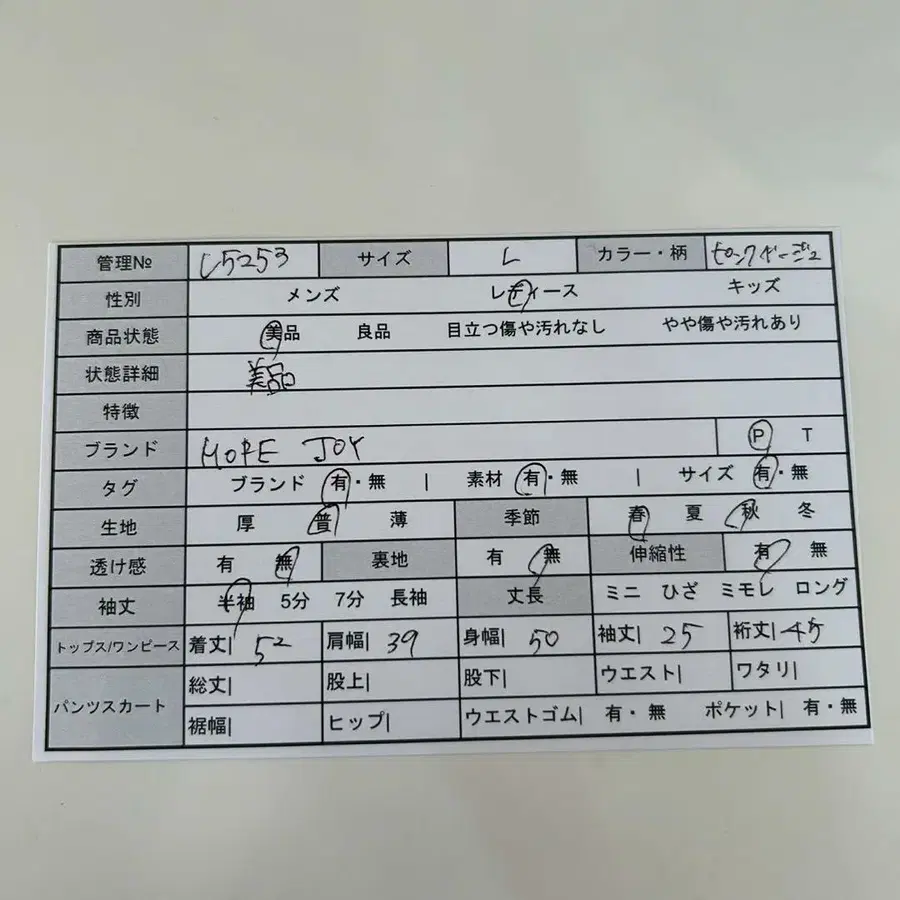 管理№ L5253 サイズ L カラー・柄 ピンクベージュ
性別 メンズ レディース キッズ
商品状態 美品 良品 目立つ傷や汚れなし やや傷や汚れあり
状態詳細 美品
特徴
ブランド MORE JOY P T
タグ ブランド 有・無 | 素材 有・無 | サイズ 有・無
生地 厚 普 薄 季節 春 夏 秋 冬
透け感 有 無 裏地 有 無 伸縮性 有 無
袖丈 半袖 5分 7分 長袖 丈長 ミニ ひざ ミモレ ロング
トップス/ワンピース 着丈| 52 肩幅| 39 身幅| 50 袖丈| 25 裄丈| 45
パンツスカート 総丈| 股上| 股下| ウエスト| ワタリ|
裾幅| ヒップ| ウエストゴム| 有・無 ポケット| 有・無